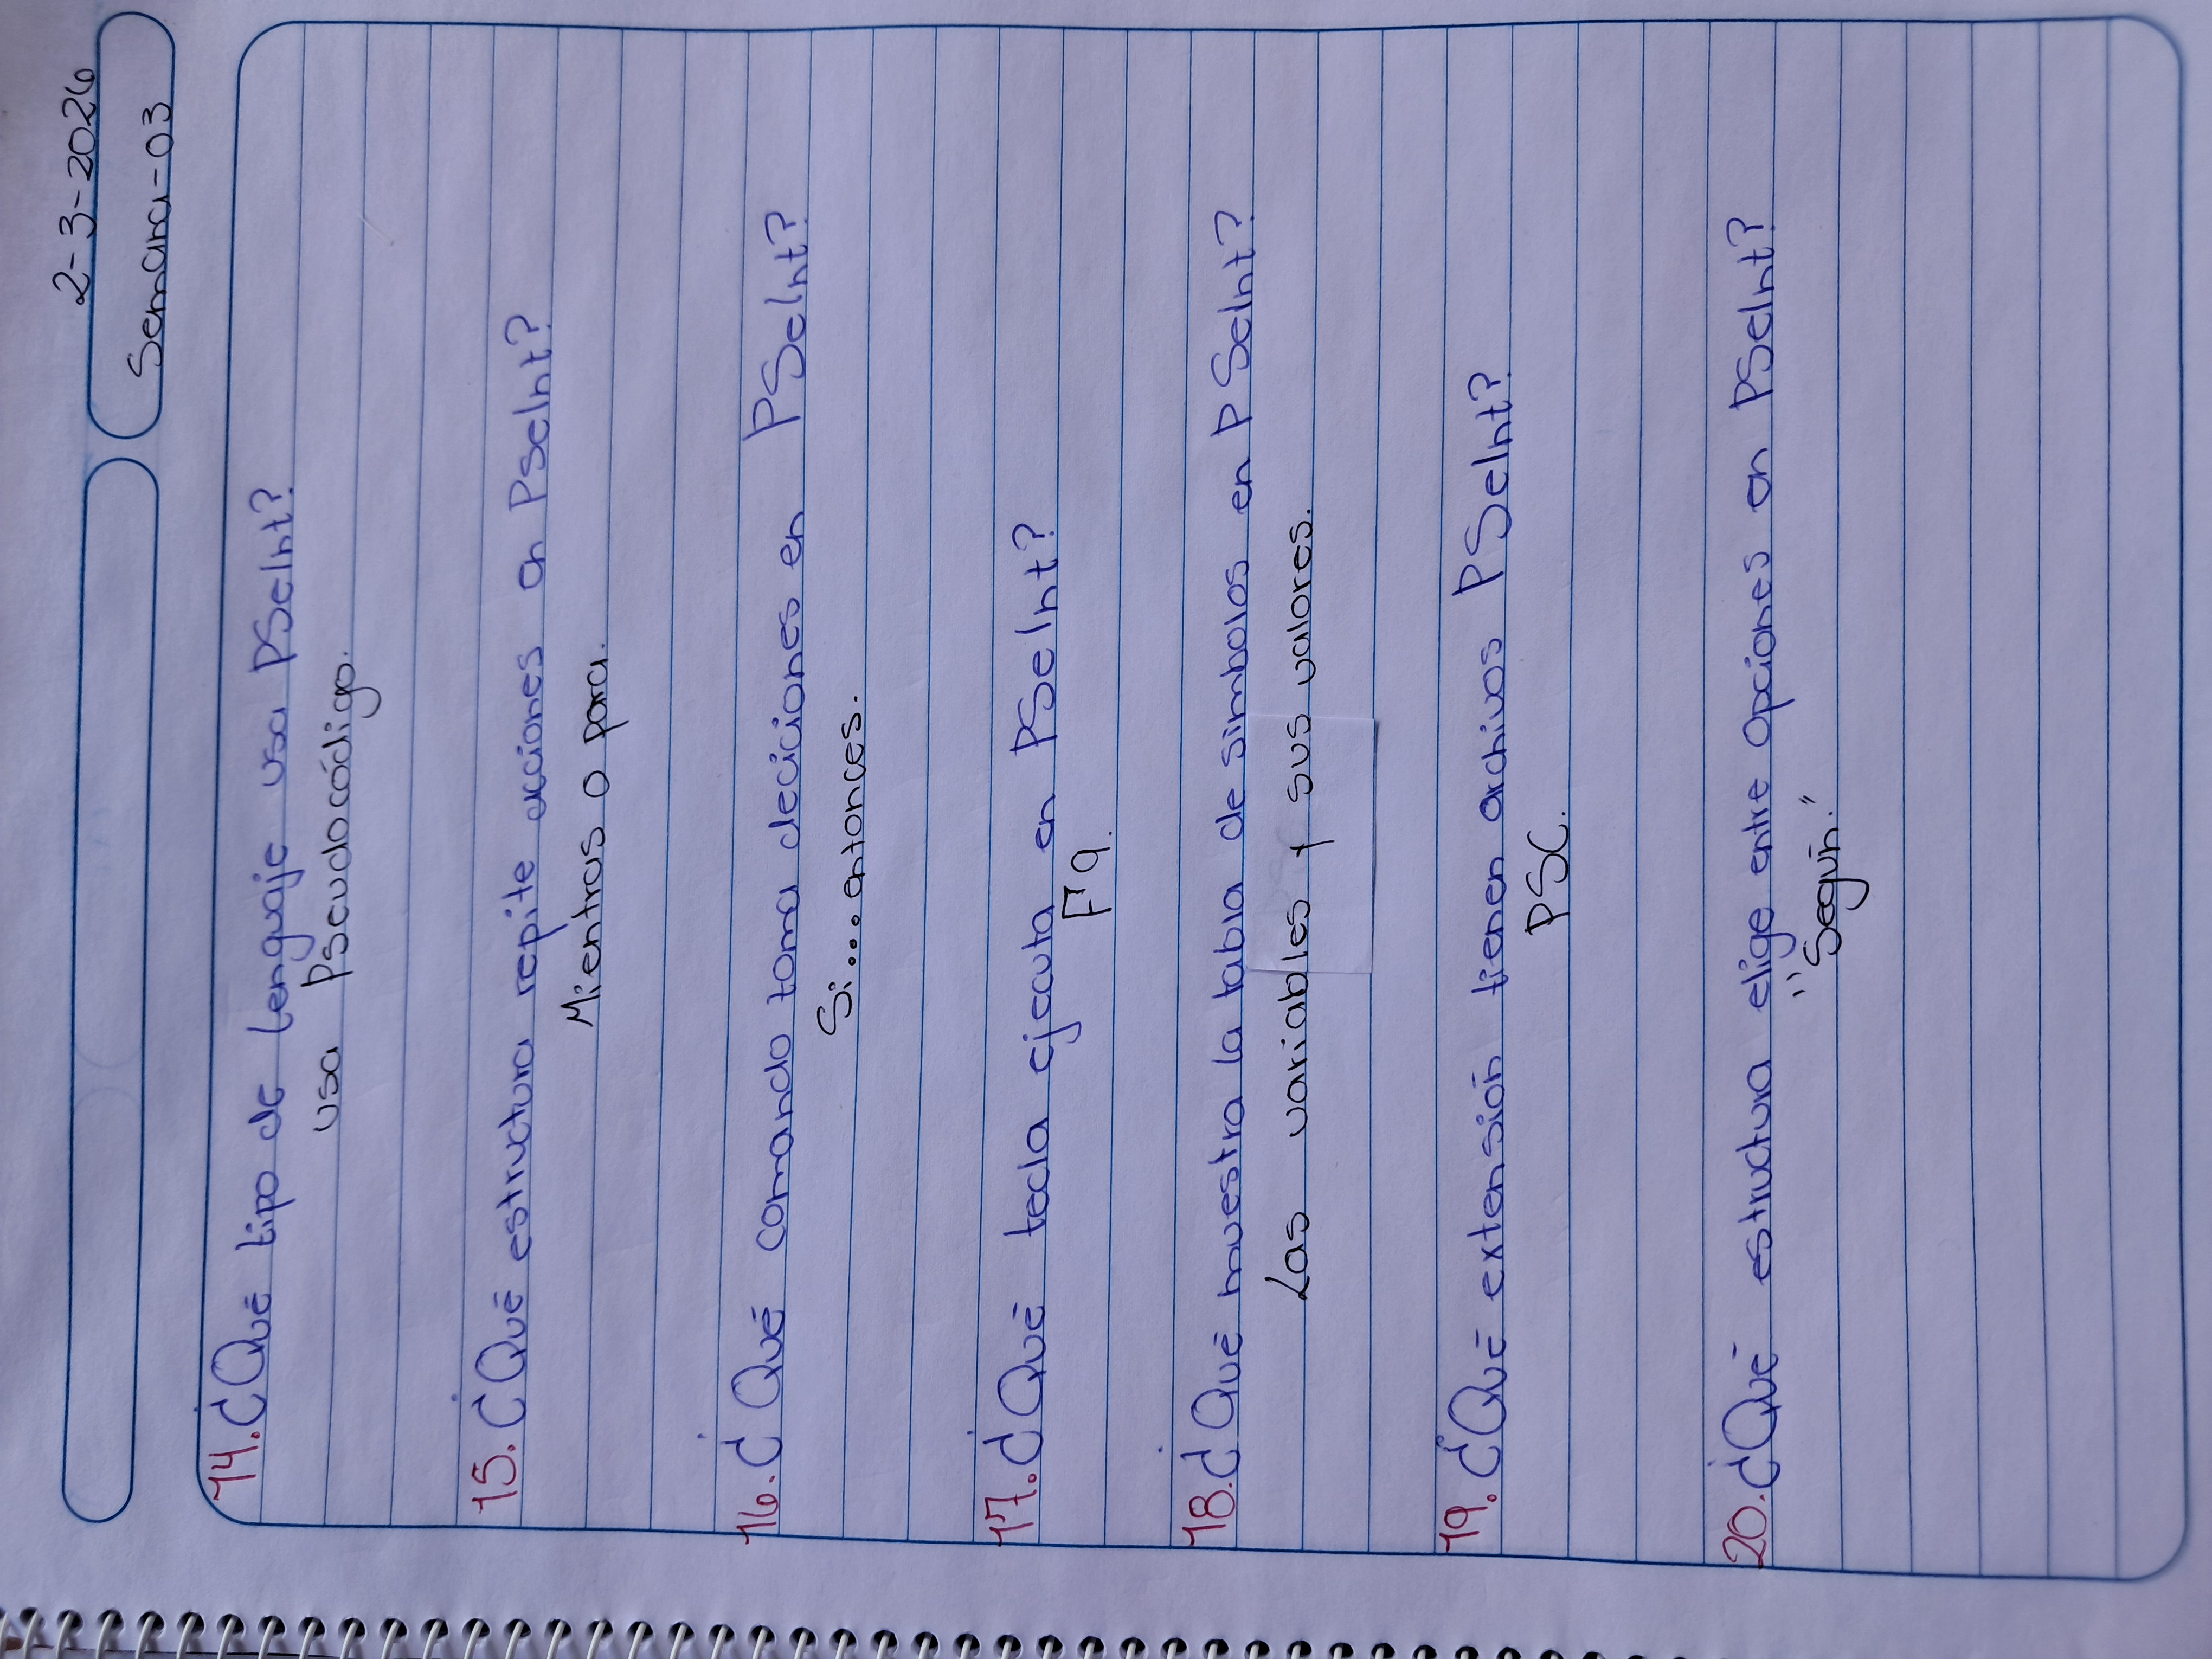 2-3-2026
Semana-03
14. ¿Qué tipo de lenguaje usa PSeInt?
usa Pseudocódigo.
15. ¿Qué estructura repite acciones en PseInt?
Mientras o para.
16. ¿Qué comando toma deciciones en PSeInt?
Si....entonces.
17. ¿Qué tecla ejecuta en PSeInt?
F9.
18. ¿Qué muestra la tabla de simbolos en PSeInt?
Las variables y sus valores.
19. ¿Qué extensión tienen archivos PSeInt?
PSC.
20. ¿Qué estructura elige entre Opciones en PSeInt?
"Según."